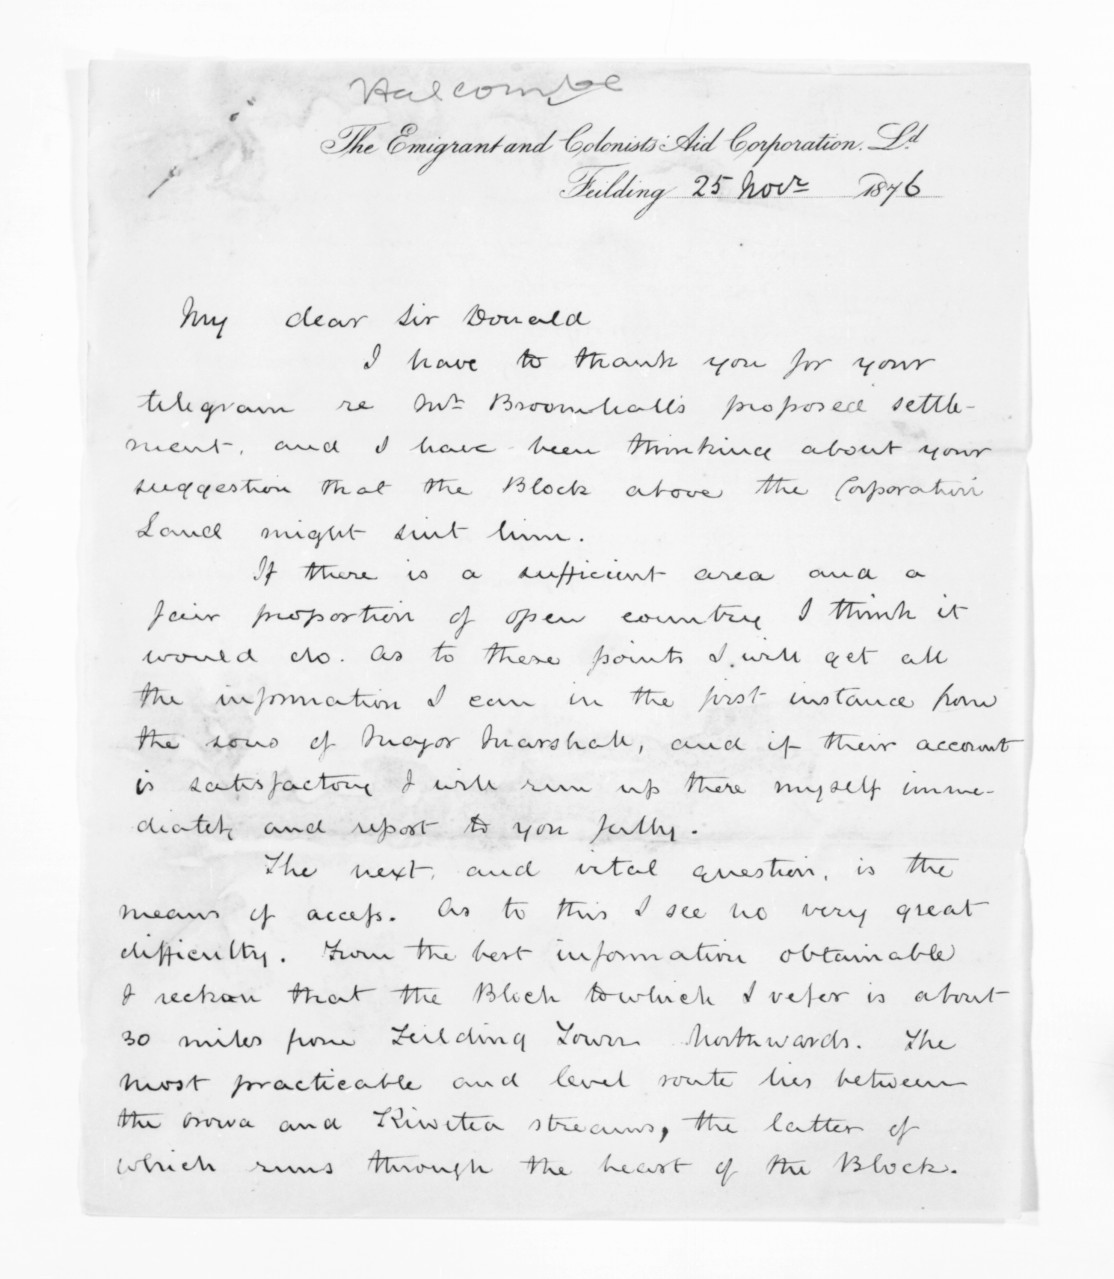 Halcombe
The Emigrant and Colonists' Aid Corporation. Ld
Feilding 25 Novr 1876
My dear Sir Donald
I have to thank you for your
telegram re Mr Broomhall's proposed settle-
ment, and I have been thinking about your
suggestion that the Block above the Corporation
Land might suit him.
If there is a sufficient area and a
fair proportion of open country I think it
would do. As to these points I will get all
the information I can in the first instance from
the sons of Major Marshall, and if their account
is satisfactory I will run up there myself imme-
diately and report to you fully.
The next, and vital question, is the
means of access. As to this I see no very great
difficulty. From the best information obtainable
I reckon that the Block to which I refer is about
30 miles from Feilding Town Northwards. The
most practicable and level route lies between
the Oroua and Kiwitea streams, the latter of
which runs through the heart of the Block.